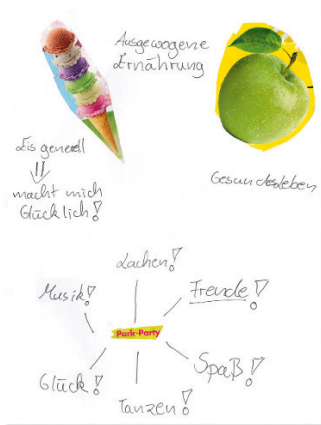 Ausgewogene
Ernährung
Eis generell
macht mich
Glücklich!
Gesundesleben
Lachen!
Musik!
Freude!
Park-Party
Glück!
Spaß!
Tanzen!